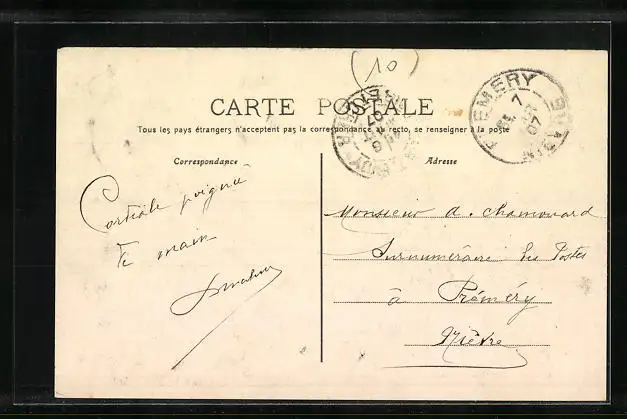 10
CARTE POSTALE
Tous les pays étrangers n'acceptent pas la correspondance au recto, se renseigner à la poste
Correspondance
Adresse
PREMERY
NIEVRE
07
Cordiale poignée
de main
Monsieur A. Chamouard
Surnuméraire des Postes
à Prémery
Nièvre